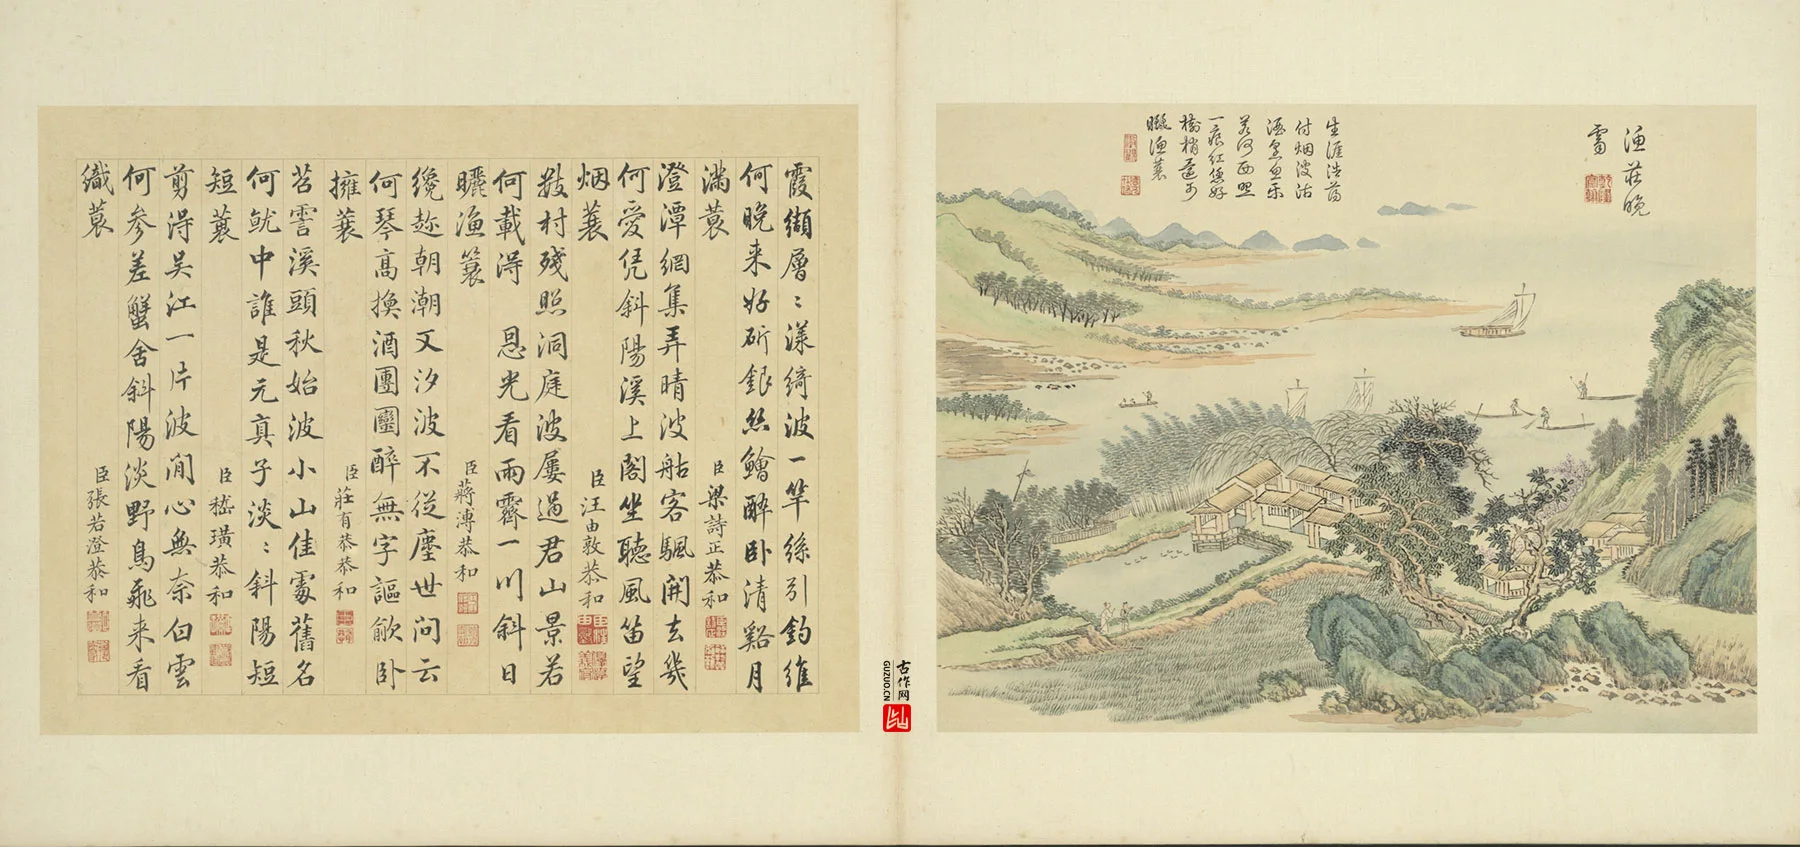 漁莊晚
霽
生涯浩蕩
付烟波沽
酒烹魚樂
若何西照
一痕紅恁好
樹梢還可
曬漁蓑
霞纈層〻漾綺波一竿絲引釣維
何晚来好斫銀絲鱠醉卧清谿月
滿蓑
臣梁詩正恭和
澄潭網集弄晴波舴客颿開去幾
何愛凭斜陽溪上閣坐聽風笛望
烟蓑
臣汪由敦恭和
數村殘照洞庭波屢過君山景若
何載得恩光看雨霽一川斜日
曬漁簑
臣蔣溥恭和
纔趂朝潮又汐波不從塵世问云
何琴高換酒團圞醉無字謳歈卧
擁蓑
臣莊有恭恭和
苕霅溪頭秋始波小山佳處舊名
何䱷中誰是元真子淡〻斜陽短
短蓑
臣嵇璜恭和
剪得吴江一片波閒心無奈白雲
何参差蟹舍斜陽淡野鳥飛来看
織蓑
臣張若澄恭和
古作网
GUZUO.CN